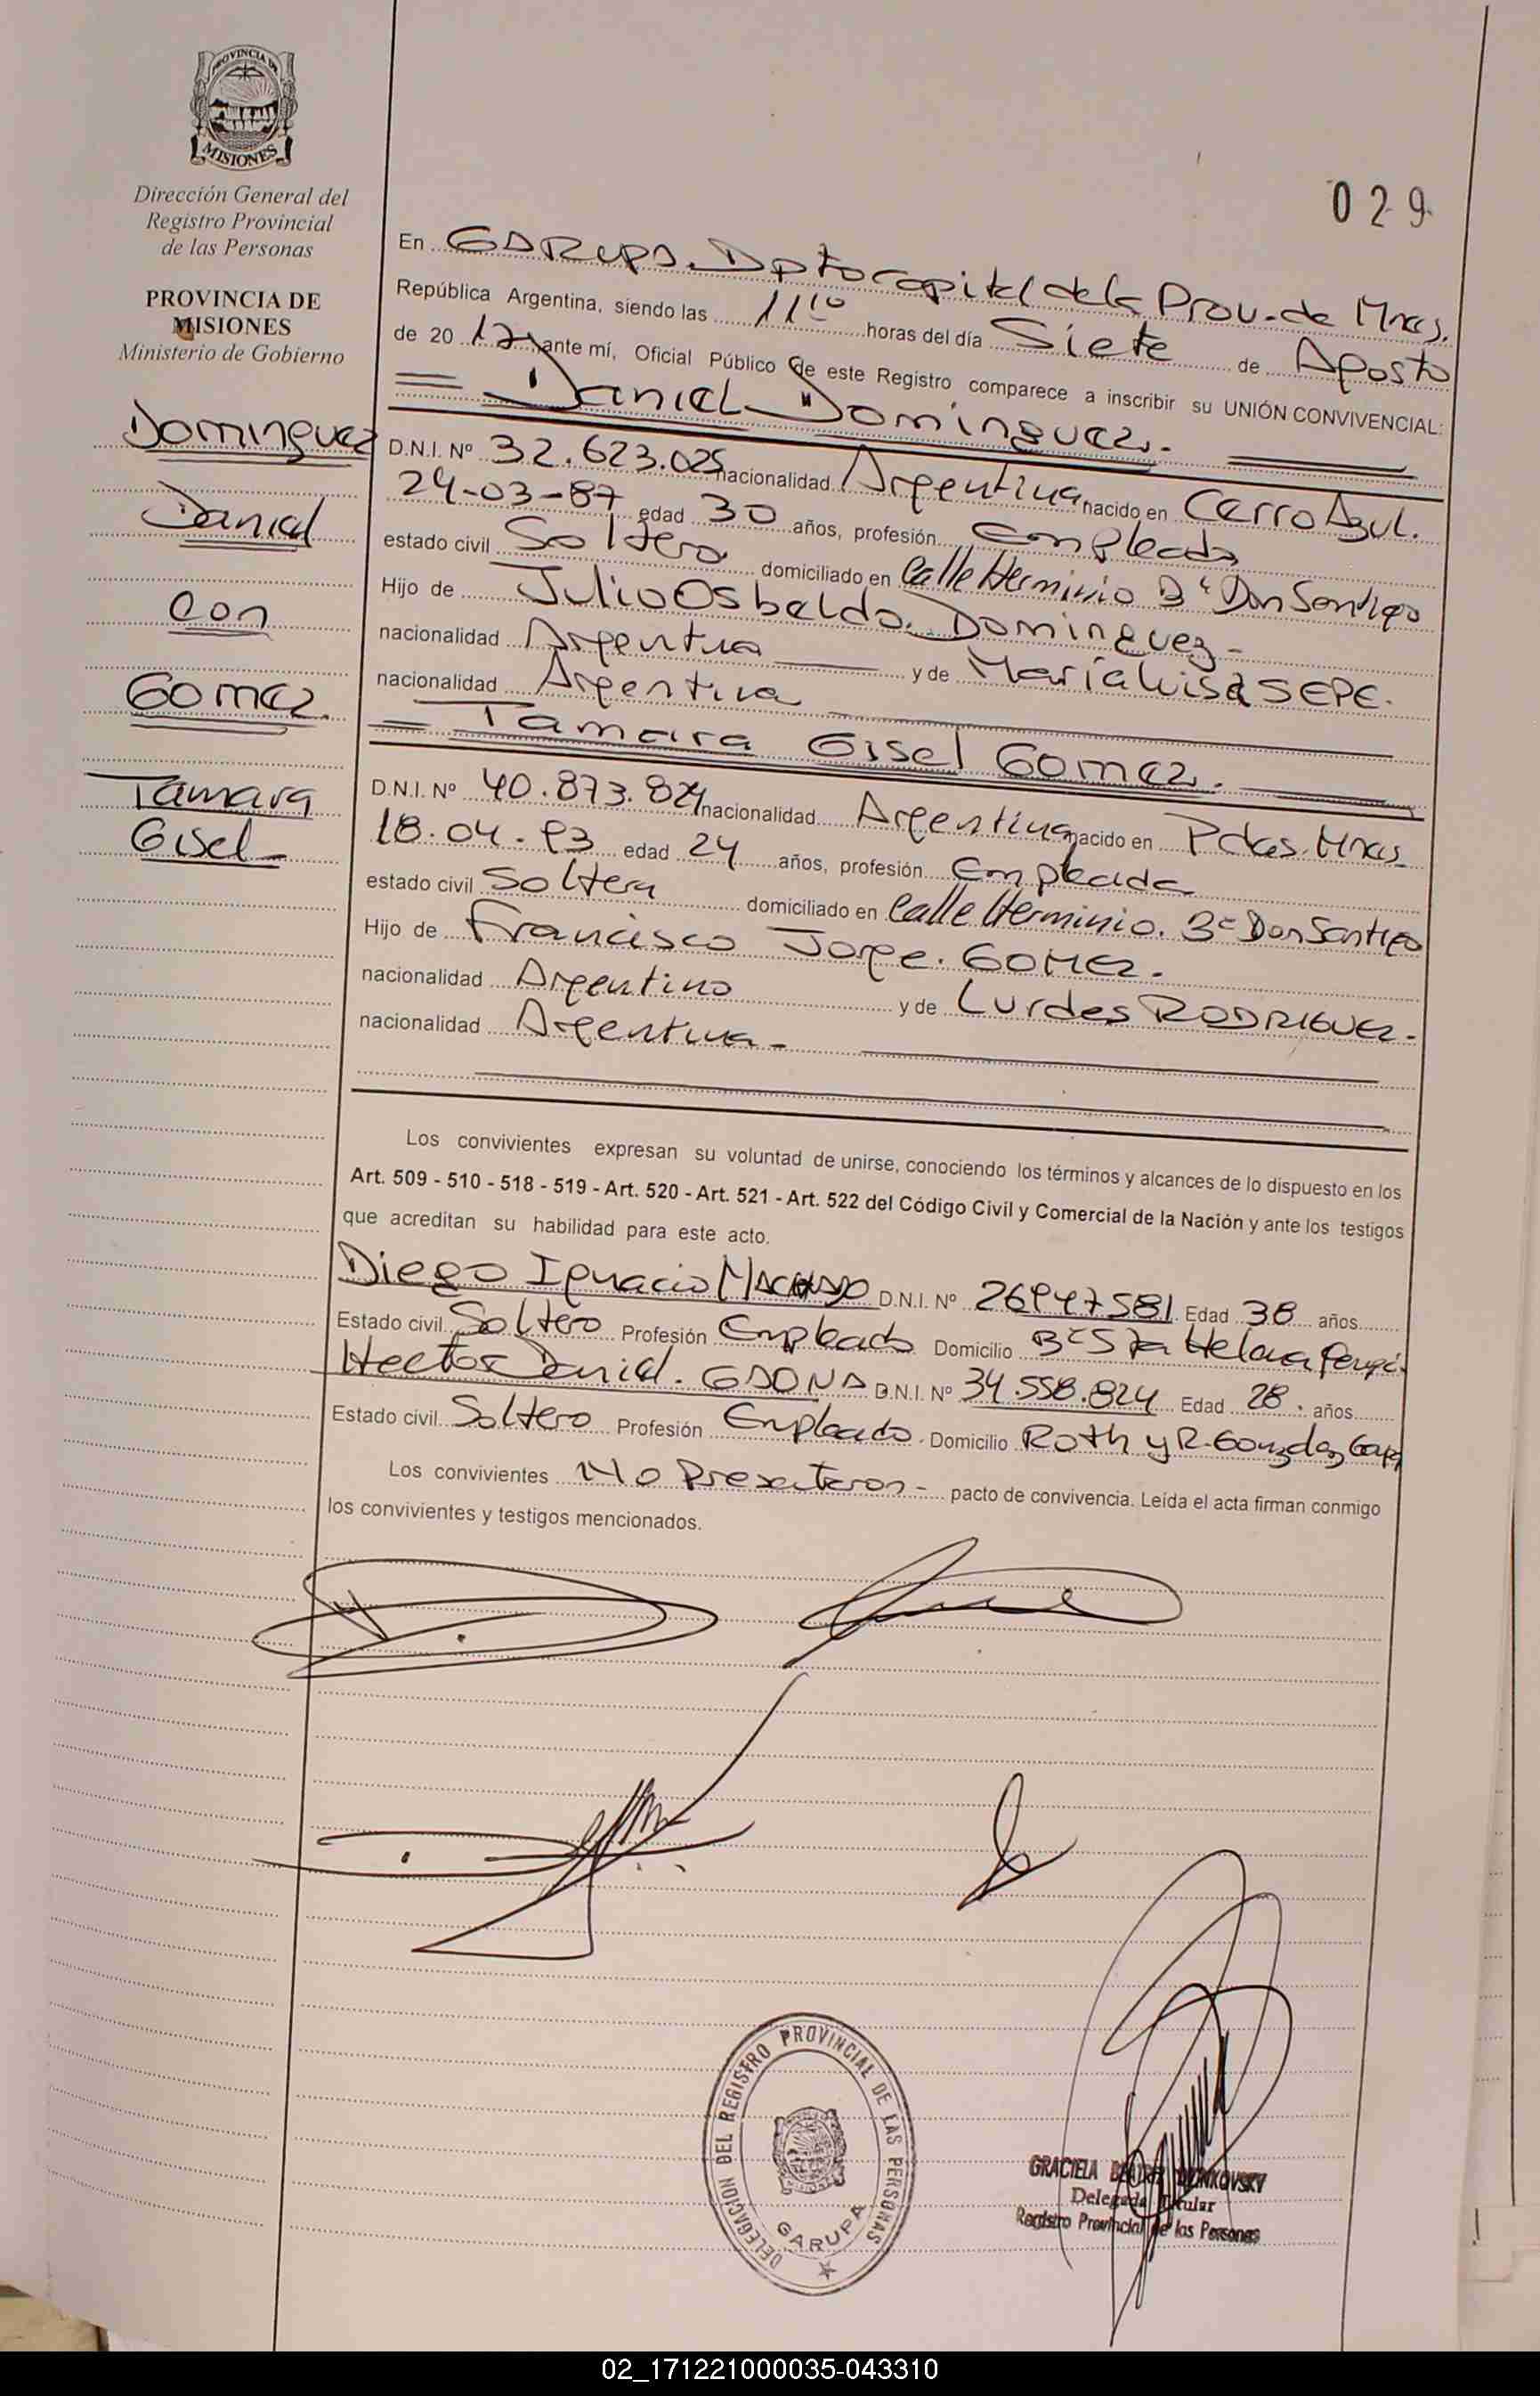 PROVINCIA DE
MISIONES
Dirección General del
Registro Provincial
de las Personas
PROVINCIA DE
MISIONES
Ministerio de Gobierno
Dominguez
Daniel
con
Gomez.
Tamara
Gisel
029
En GARUPA. Dpto capital de la Prov. de Mnes.
República Argentina, siendo las 11:10 horas del día Siete de Agosto
de 20 17 ante mí, Oficial Público de este Registro comparece a inscribir su UNIÓN CONVIVENCIAL:
Daniel Dominguez.
D.N.I. Nº 32.623.025 nacionalidad Argentina nacido en Cerro Azul.
24-03-87 edad 30 años, profesión Empleado
estado civil Soltero domiciliado en Calle Herminio Bº Don Santiago
Hijo de Julio Osbaldo. Dominguez-
nacionalidad Argentina y de María Luisa SEPE.
nacionalidad Argentina
Tamara Gisel Gomez.
D.N.I. Nº 40.873.824 nacionalidad Argentina nacido en Pdas. Mnes
18-04-93 edad 24 años, profesión Empleada
estado civil Soltera domiciliado en Calle Herminio. Bº Don Santiago
Hijo de Francisco Jorge. GOMEZ.
nacionalidad Argentino y de Lurdes RODRIGUEZ-
nacionalidad Argentina-
Los convivientes expresan su voluntad de unirse, conociendo los términos y alcances de lo dispuesto en los
Art. 509 - 510 - 518 - 519 - Art. 520 - Art. 521 - Art. 522 del Código Civil y Comercial de la Nación y ante los testigos
que acreditan su habilidad para este acto.
Diego Ignacio MACHADO D.N.I. Nº 26947581. Edad 38 años
Estado civil Soltero Profesión Empleado Domicilio Bº Sta Helena
Hector Daniel. GAONA D.N.I. Nº 34.558.824 Edad 28. años
Estado civil Soltero Profesión Empleado. Domicilio Roth y R. Gonzalez
Los convivientes No Presentaron- pacto de convivencia. Leída el acta firman conmigo
los convivientes y testigos mencionados.
DELEGACION DEL REGISTRO PROVINCIAL DE LAS PERSONAS
GARUPA
GRACIELA
Delegada Titular
Registro Provincial de las Personas
02_171221000035-043310